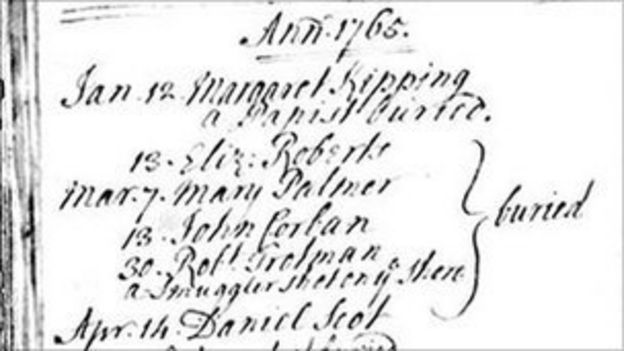 Ann. 1765.
Jan. 12. Margaret Kipping
a Papist buried.
13. Eliz: Roberts
Mar. 7. Mary Palmer
13. John Corban
buried
30. Robt. Trotman
a Smuggler shot on ye Shore
Apr. 14. Daniel Scot